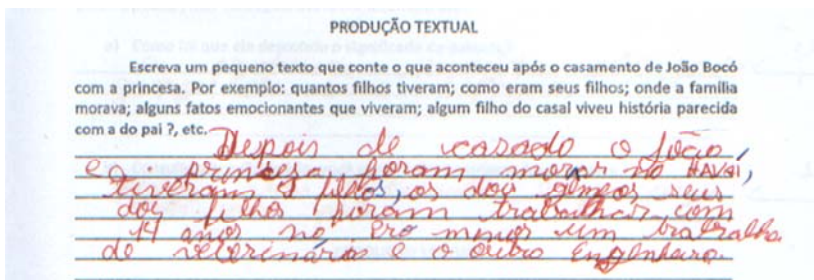 PRODUÇÃO TEXTUAL
Escreva um pequeno texto que conte o que aconteceu após o casamento de João Bocó
com a princesa. Por exemplo: quantos filhos tiveram; como eram seus filhos; onde a família
morava; alguns fatos emocionantes que viveram; algum filho do casal viveu história parecida
com a do pai ?, etc.
Depois de casado o João
e a princesa, foram morar no HAVAÍ,
tiveram 2 filhos, os dois gêmeos seus
dois filhos foram trabalhar com
14 anos no menos um trabalha
de veterinários e o outro Engenheiro.